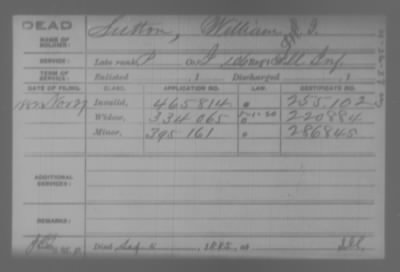 DEAD
NAME OF SOLDIER: Sutton, William
SERVICE: Late rank P Co. I Reg't Ill Inf.
TERM OF SERVICE: Enlisted , 1 Discharged , 1
DATE OF FILING. CLASS. APPLICATION NO. LAW. CERTIFICATE NO.
Invalid, 465814 255102
Widow, 334065 220884
Minor, 395161 286845
ADDITIONAL SERVICES:
REMARKS:
Died , 1882, at Ill.